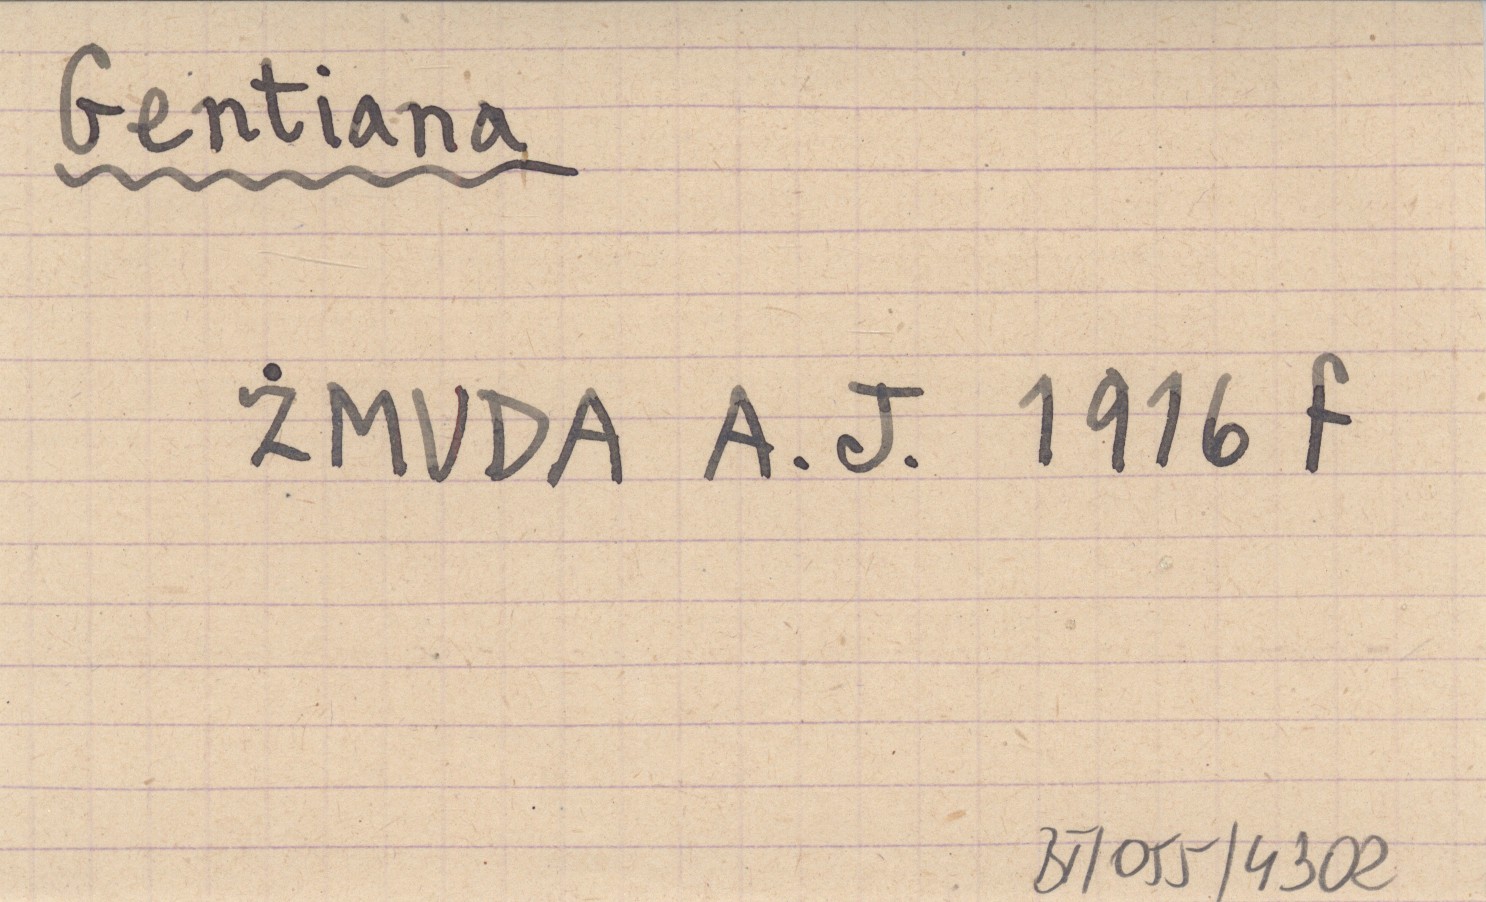 Gentiana
ŻMUDA A.J. 1916 f
BT/055/4302